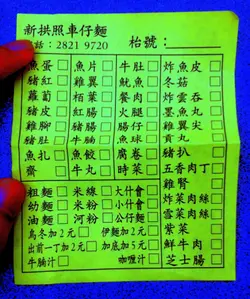 新拱照車仔麵
電話：2821 9720 枱號：
魚蛋 魚片 牛肚 炸魚皮
豬紅 雞翼 魷魚 冬菇
蘿蔔 栢葉 餐肉 炸雲吞
豬皮 紅腸 火腿 墨魚丸
雞腳 豬腸 腸仔 雞翼尖
豬肚 牛腩 魚球 貢丸
魚扎 魚餃 腐卷 豬扒
齋 牛丸 時菜 五香肉丁
雞腎
粗麵 米線 大什會 炸菜肉絲
幼麵 米粉 小什會 雪菜肉絲
油麵 河粉 公仔麵 紫菜
烏冬加2元 伊麵加2元 鮮牛肉
出前一丁加2元 加底加5元 芝士腸
牛腩汁 咖喱汁